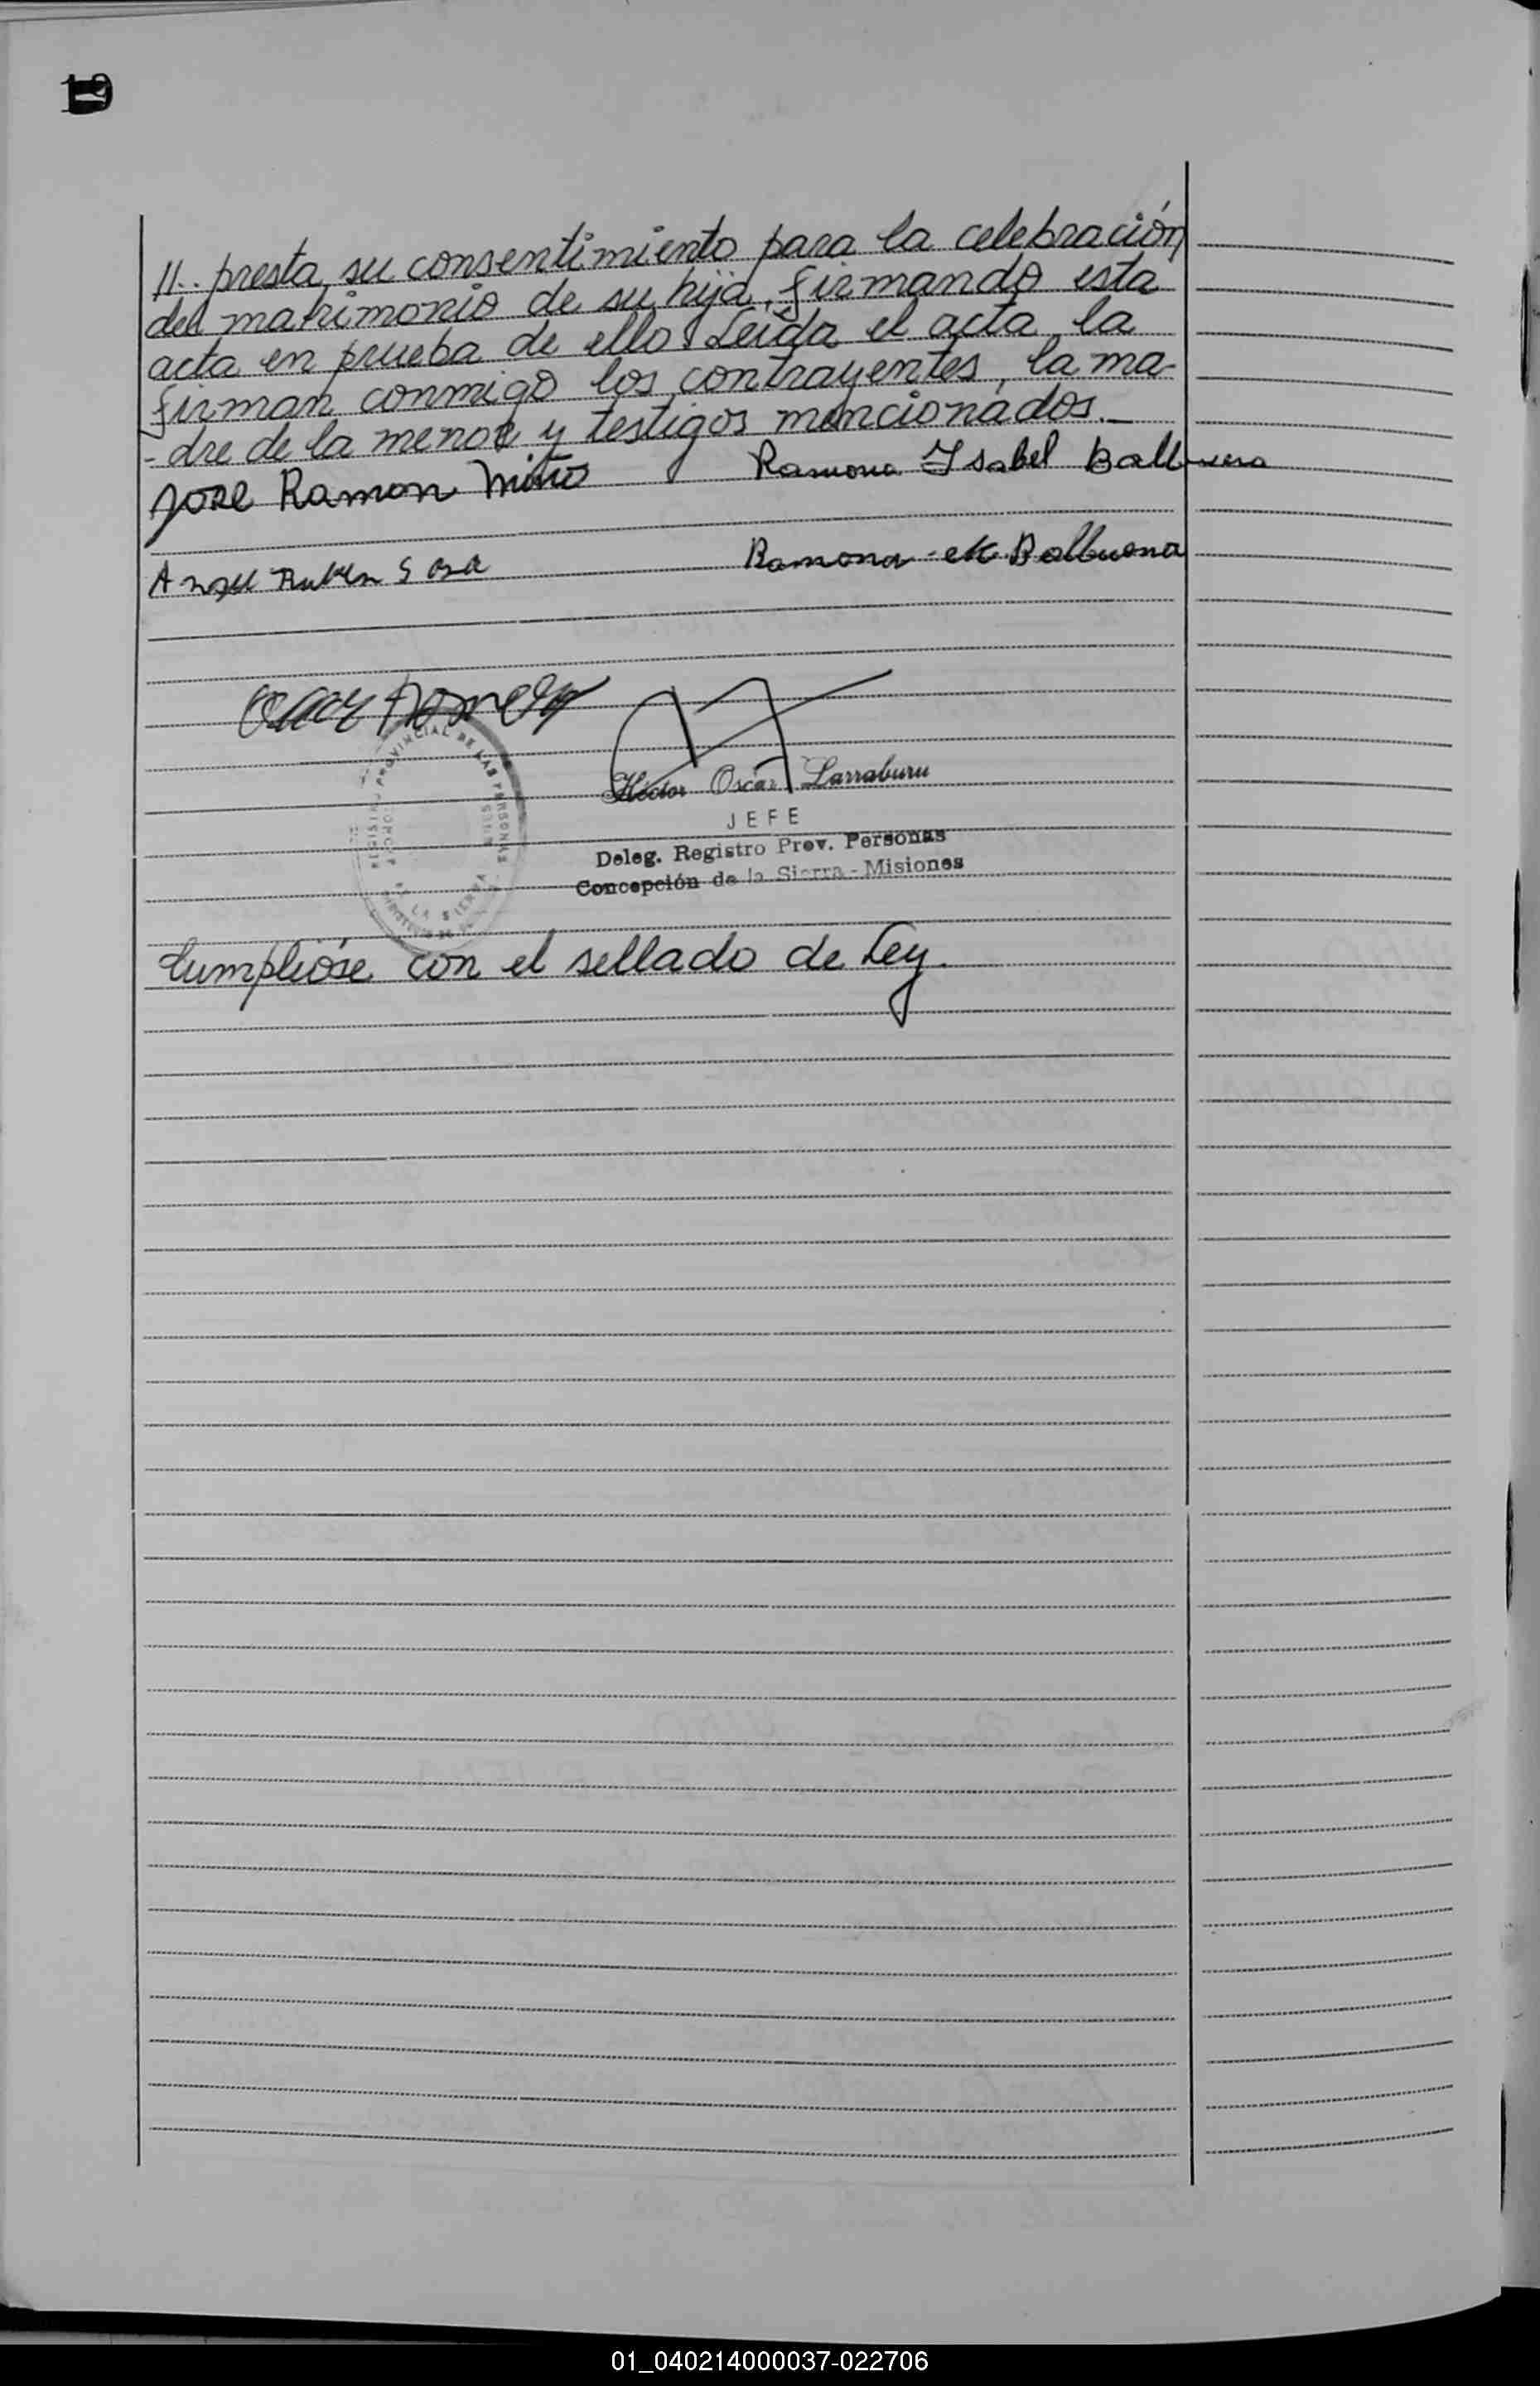 19
11.. presta su consentimiento para la celebración
del matrimonio de su hija, firmando esta
acta en prueba de ello. Leída el acta, la
firman conmigo los contrayentes, la ma-
-dre de la menor y testigos mencionados.-
Jose Ramon Niño Ramona Isabel Balbuena
Angel Ruben Sosa Ramona M. Balbuena
Oscar
REGISTRO PROVINCIAL DE LAS PERSONAS
DE LA SIERRA
Héctor Oscar Larraburu
JEFE
Deleg. Registro Prov. Personas
Concepción de la Sierra - Misiones
Cumplióse con el sellado de Ley.
01_040214000037-022706